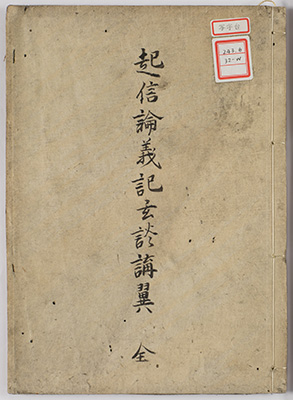 起信論義記玄談講翼 全